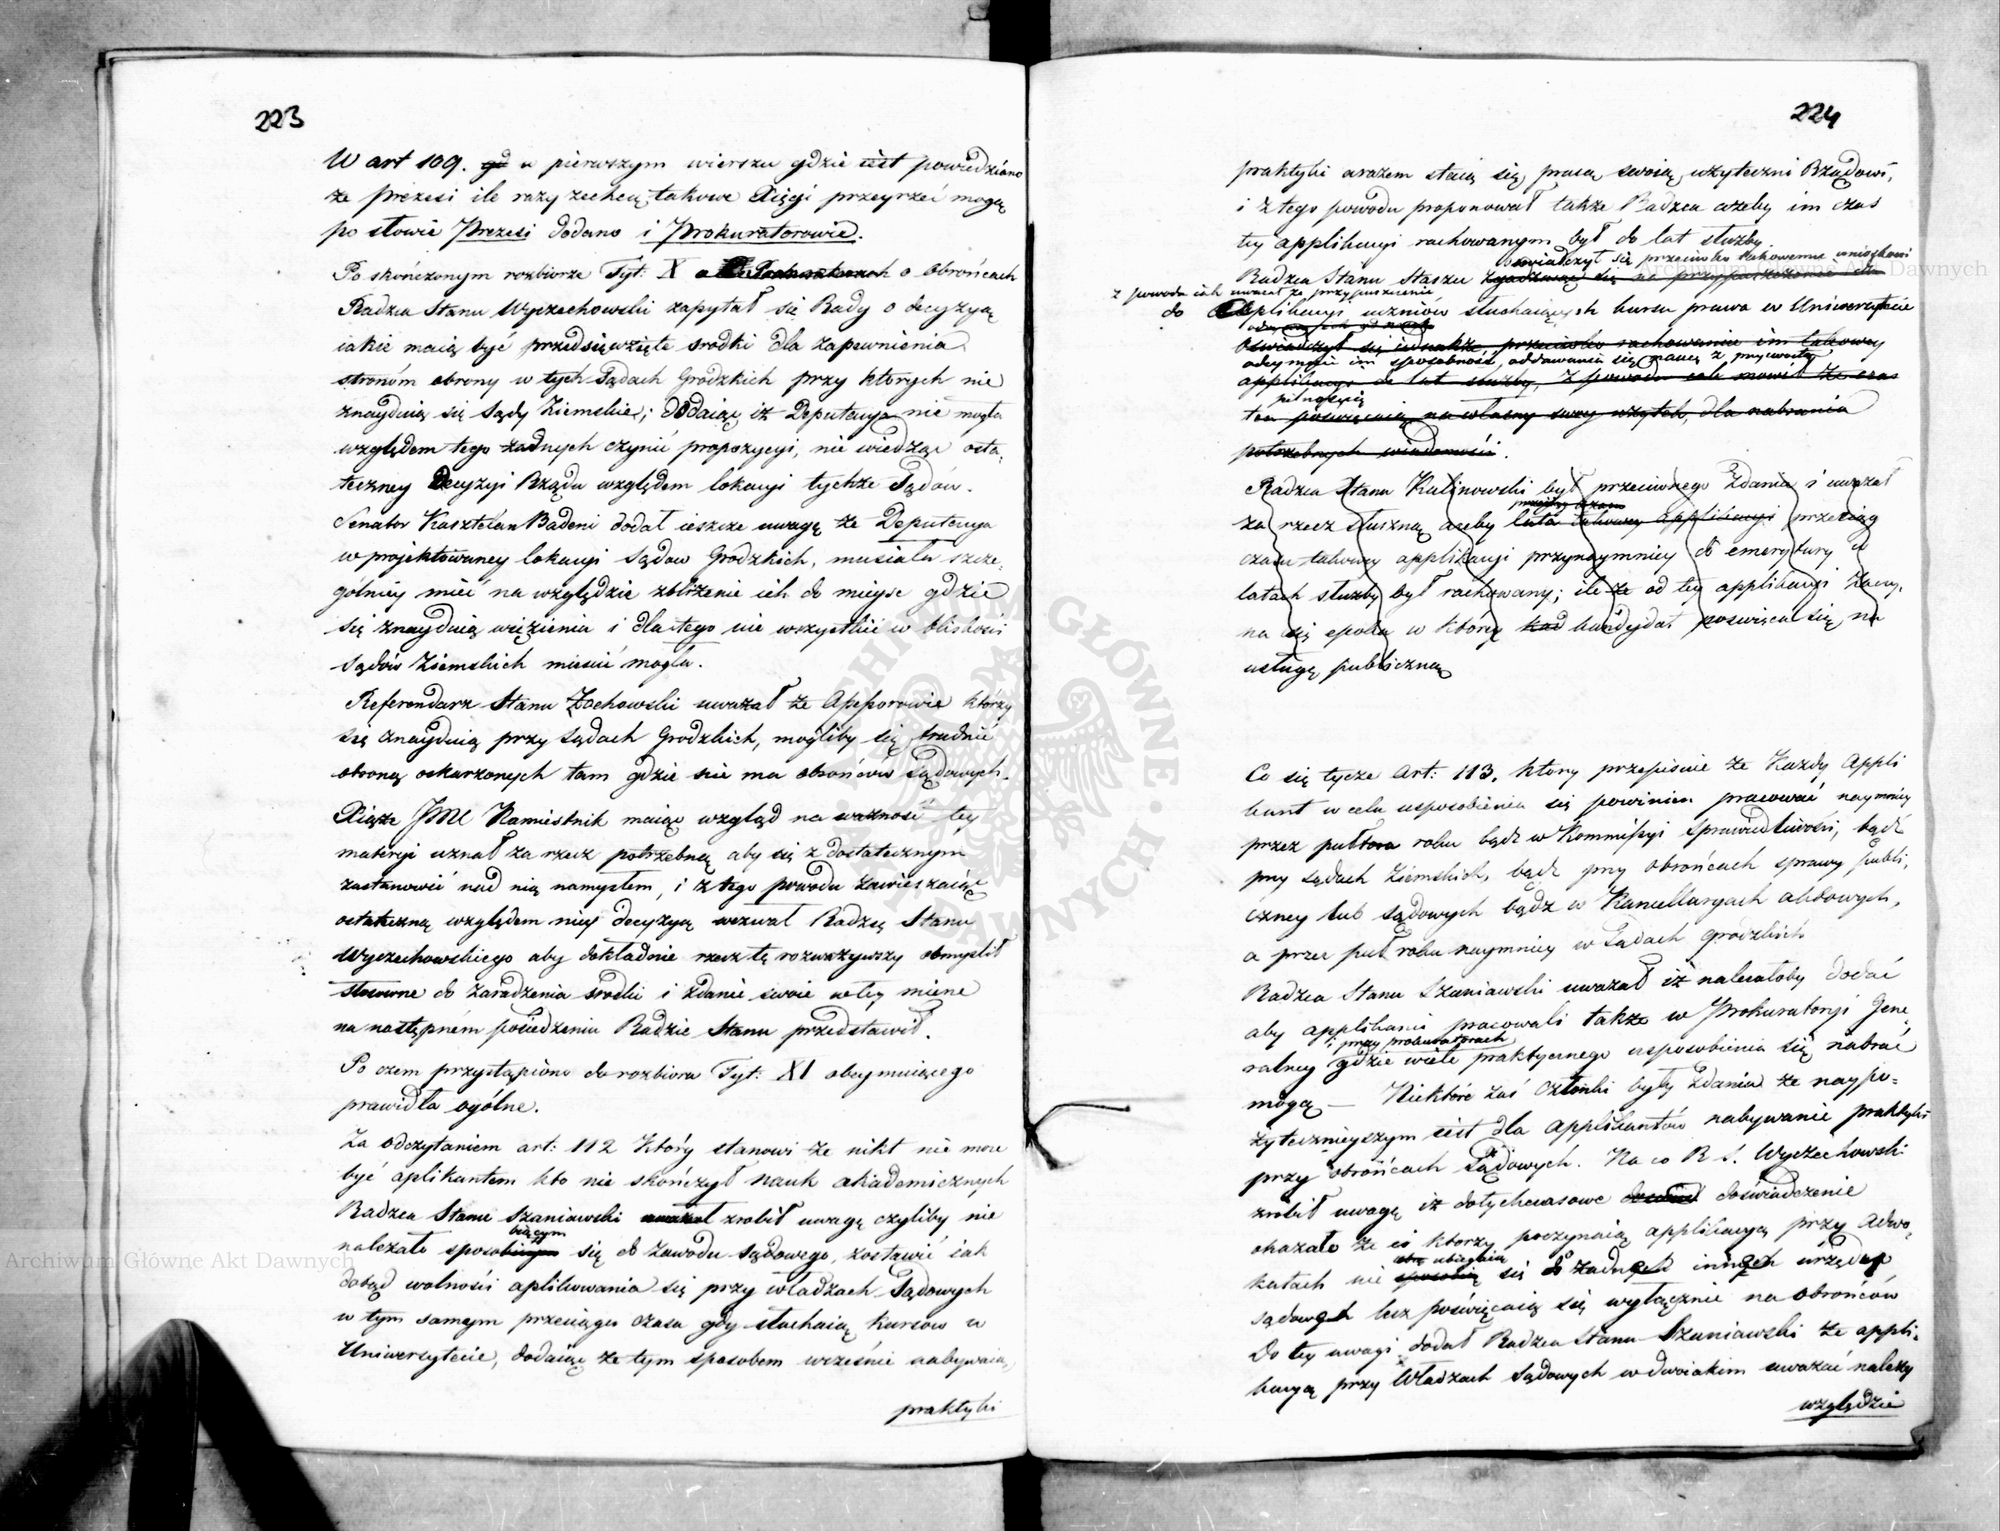 223
W art 109. w pierwszym wierszu gdzie iest powiedziano
że prezesi ile razy zechcą takowe Xięgi przeyrzeć mogą
po słowie Prezesi dodano i Prokuratorowie.
Po skończonym rozbiorze Tyt: X o obrońcach
Radzca Stanu Wyczechowski zapytał się Rady o decyzyą
iakie maią być przedsięwzięte srodki dla zapewnienia
stronom obrony w tych Sądach Grodzkich przy których nie
znayduią się Sądy Ziemskie; dodaiąc iż Deputacya nie mogła
względem tego żadnych czynić propozycyi, nie wiedząc osta,
teczney Decyzyi Rządu względem lokacyi tychże Sądów.
Senator Kasztelan Badeni dodał ieszcze uwagę że Deputacya
w projektowaney lokacyi Sądów Grodzkich, musiała szcze,
gólniey mieć na względzie zbliżenie ich do mieysc gdzie
się znayduią więzienia i dla tego nie wszystkie w bliskości
Sądów Ziemskich mieścić mogła.
Referendarz Stanu Żochowski uważał że Assesorowie którzy
się znayduią przy Sądach Grodzkich, mogliby się trudnić
obroną oskarżonych tam gdzie nie ma obrońców Sądowych.
Xiąże JMC Namiestnik maiąc wzgląd na ważność tey
materyi uznał za rzecz potrzebną aby się z dostatecznym
zastanowić nad nią namysłem, i z tego powodu zawieszaiąc
ostateczną względem niey decyzyą wezwał Radzcę Stanu
Wyczechowskiego aby dokładnie rzecz tę rozważywszy obmyślił
stosowne do zaradzenia środki i zdanie swoie w tey mierze
na następném posiedzeniu Radzie Stanu przedstawił.
Po czem przystąpiono do rozbioru Tyt: XI obeymuiącego
prawidła ogólne.
Za odczytaniem art: 112 który stanowi że nikt nie może
być aplikantem kto nie skończył nauk akademicznych
Radzca Stanu Szaniawski zrobił uwagę czyliby nie
biącym
należało sposobiącym się do zawodu sądowego, zostawić iak
dotąd wolności aplikowania się przy władzach Sądowych
w tym samym przeciągu czasu gdy słuchaią kursów w
Uniwersytecie, dodaiąc że tym sposobem wcześnie nabywaią
praktyki
224
praktyki a razem staią się pracą swoią użyteczni Rządowi,
i z tego powodu proponował także Radzca ażeby im czas
tey applikacyi rachowanym był do lat służby
oświadczył się przeciwko takowemu wnioskowi
Radzca Stanu Staszic zgadzaiąc się na przypuszczenie do
z powodu iak uważał że przypuszczenie
do applikacyi uczniów słuchaiących kursu prawa w Uniwersytecie
oświadczył się iednakże przeciwko rachowaniu im takowey
odeymuie im sposobność oddawania się nauce z przyzwoitą
applikacyi do lat służby, z powodu iak mówił że czas
pilnością
ten poświęcaią na własny swoy użytek, dla nabrania
potrzebnych wiadomości.
Radzca Stanu Kalinowski był przeciwnego zdania i uważał
za rzecz słuszną ażeby lata takowey applikacyi przeciąg
czasu takowey applikacyi przynaymniey do emerytury w
latach służby był rachowany; ile że od tey applikacyi zaczy,
na się epoka w którey kandydat poświęca się na
usługę publiczną
Co się tycze Art: 113. który przepisuie że Każdy Appli
kant w celu usposobienia się powinien pracować naymniey
przez półtora roku bądź w Kommissyi Sprawiedliwości, bądź
przy Sądach Ziemskich, bądź przy obrońcach sprawy publi,
czney lub Sądowych bądź w Kancellaryach aktowych,
a przez puł roku naymniey w Sądach Grodzkich
Radzca Stanu Szaniawski uważał iż należałoby dodać
aby applikanci pracowali także w Prokuratoryi Jene,
i przy prokuratorach
ralney gdzie wiele praktycznego usposobienia się nabrać
mogą — Niektóre zaś Członki były zdania że naypo=
żytecznieyszym iest dla applikantów nabywanie praktyki
przy obrońcach Sądowych. Na co R. S. Wyczechowski
zrobił uwagę iż dotychczasowe doświadczenie
okazało że ci ktorzy poczynaią applikacyą przy Adwo,
ubiegaią
katach nie sposobią się do żadnych innych urzędów
sądowych lecz poświęcaią się wyłącznie na obrońców
Do tey uwagi dodał Radzca Stanu Szaniawski że appli,
kacyą przy Władzach Sądowych w dwoiakim uważać należy
względzie
Archiwum Główne Akt Dawnych
Archiwum Główne Akt Dawnych
ARCHIWUM GŁÓWNE AKT DAWNYCH